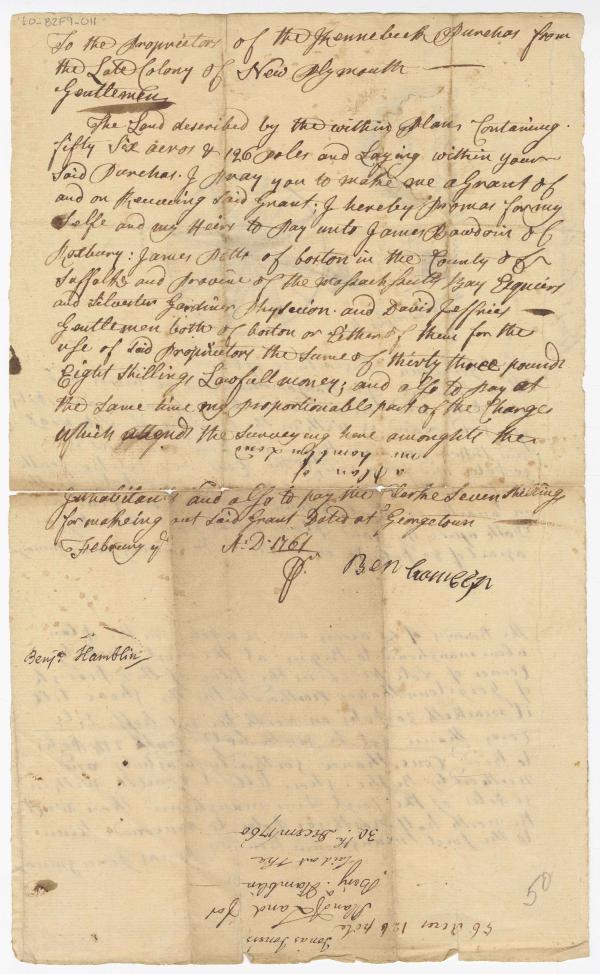 LO-B2F9-011
To the Proprietors of the Kennebeck Purchas from
the Late Colony of New Plymouth
Gentlemen
The Land described by the within Plan Containing
fifty Six acros & 126 poles and Laying within your
Said Purchas. I Pray you to make me a Grant of
and on Receveing Said Grant; I hereby Promas for my
Selfe and my Heirs to Pay unto James Bawdoin of
Roxbury: James Pitts of boston in the County of
Suffolk and Province of the Massachusetts Bay Esquiers
and Silvester Gardiner Physecion. and David Jeffries
Gentlemen both of boston or Either of them for the
use of Said Proprietors the Sume of thirty three pounds
Eight Shillings Lawfull money; and also to pay at
the Same time my proportionable part of the Charges
which attends the Surveying here amonghts the
a plan of
Hamblin Land
Inhabitants and also to pay the Clerke Seven Shillings
for makeing out Said Grant Dated at Georgetown
Februry ye A:D. 1761
Ben Hamblen
Benja. Hamblin
56 Acres 126 pole
Jonas Jones's
Plan of Land for
Benj. Hamblin
Laid out the
30th. Decem 1760
50